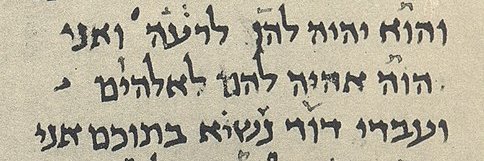 והוא יהיה להן לרעה ואני
הוה אהיה להם לאלהים
ועבדי דוד נשיא בתוכם אני